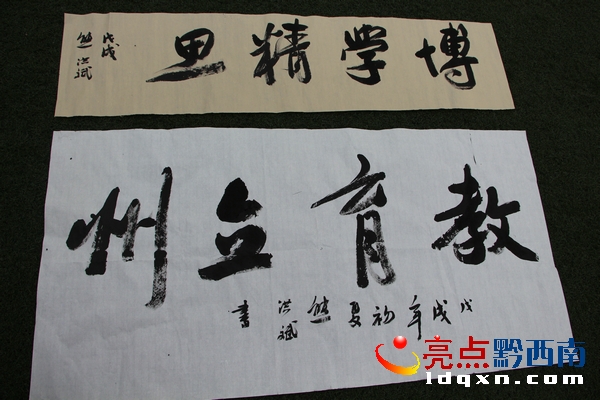 博学精思
戊戌
熊洪斌
教育立州
戊戌年初夏熊洪斌書
亮点黔西南
ldqxn.com